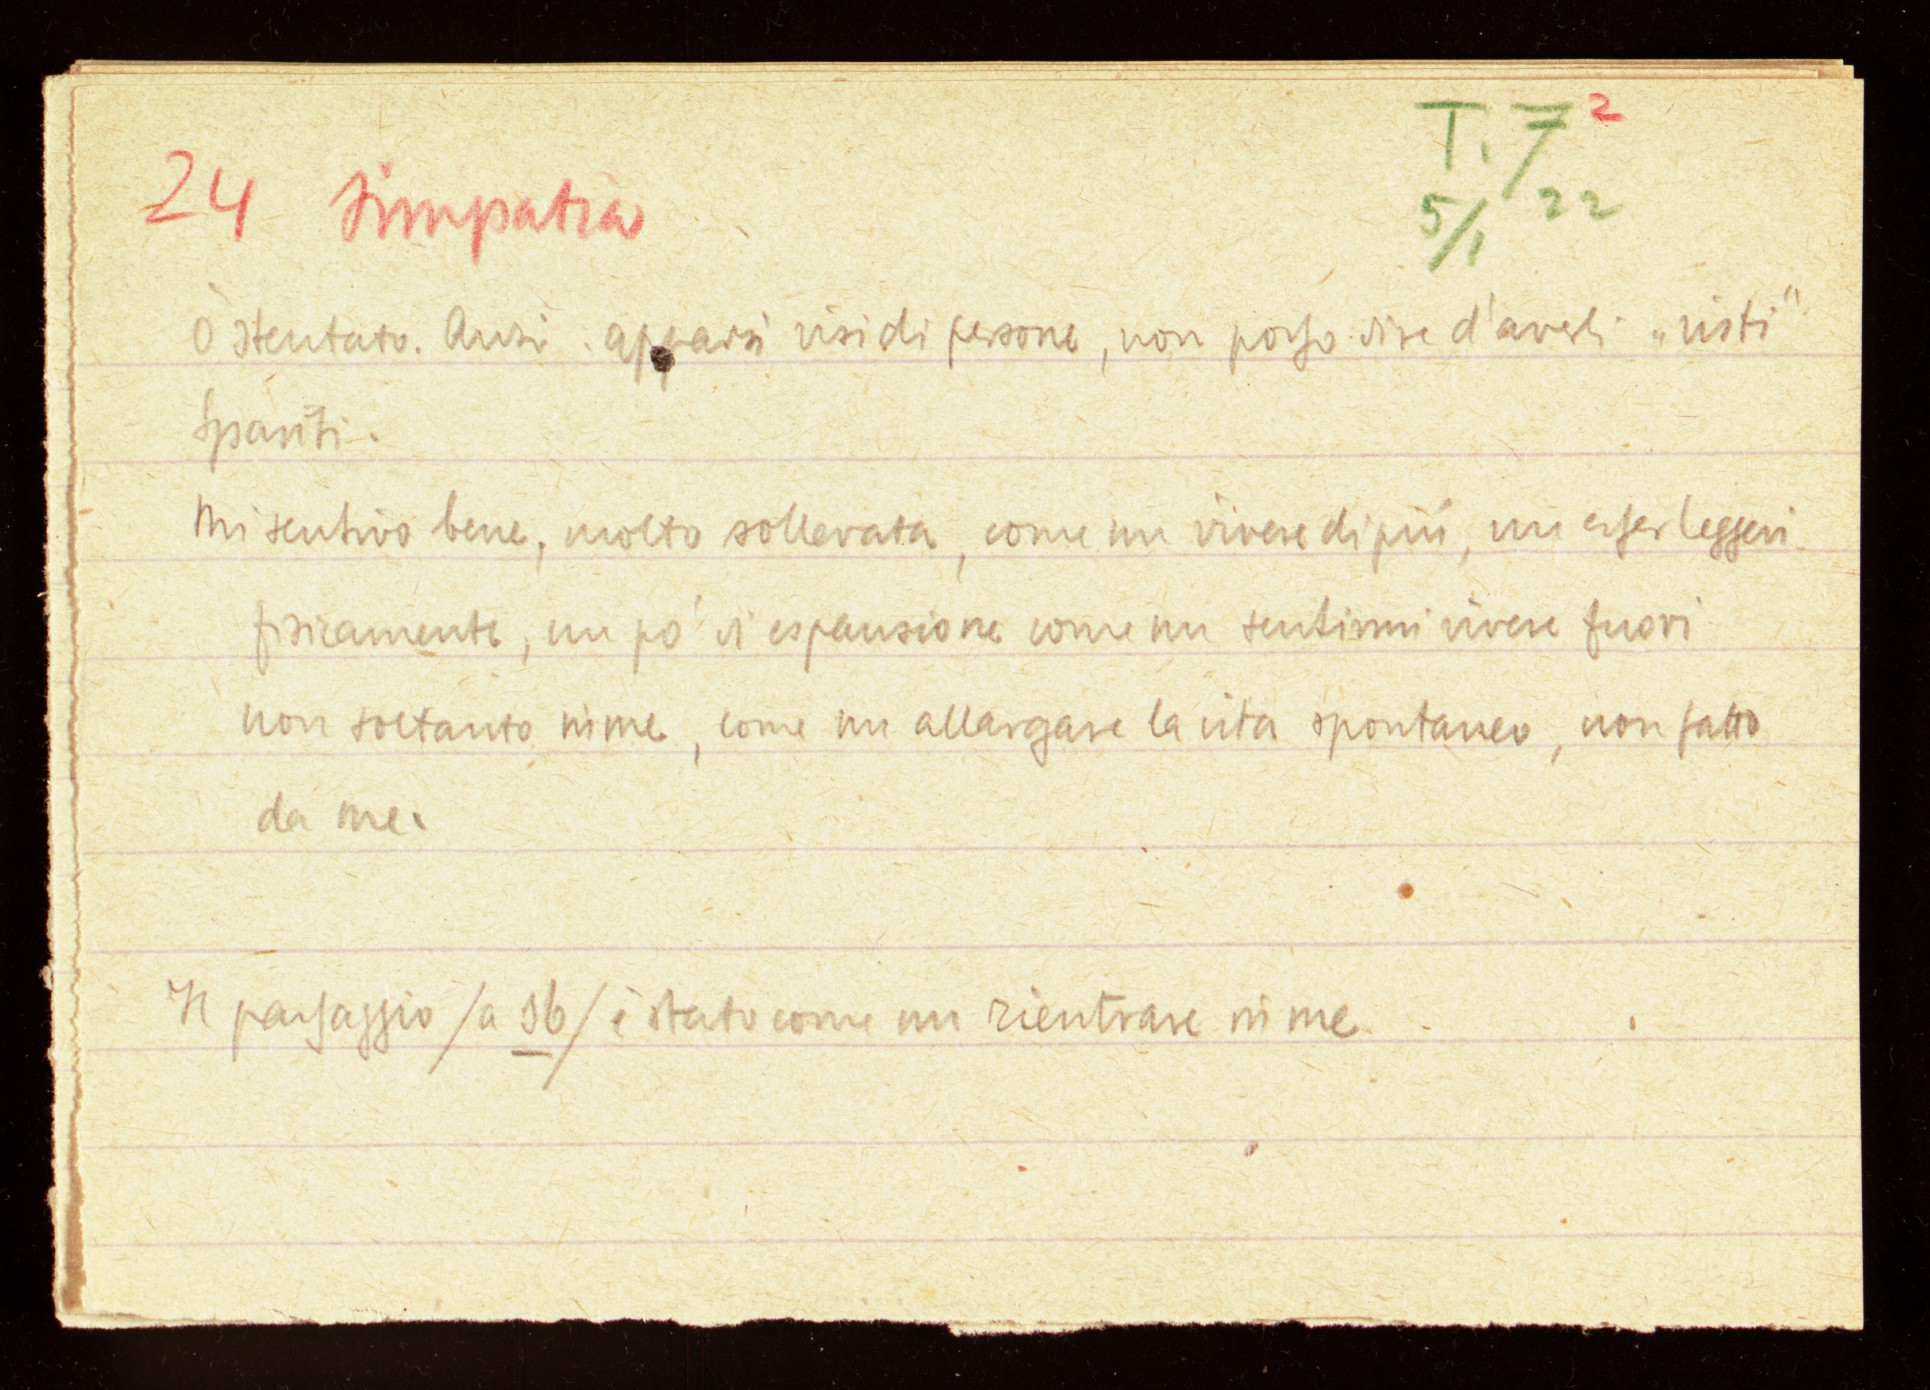 T. 7 2
24 Simpatia
5/1 22
Ò stentato. Ansi. apparsi visi di persone, non posso dire d'averli „visti“
spariti.
Mi sentivo bene, molto sollevata, come un vivere di più, un esser leggeri
fisicamente, un po' di espansione come un sentirmi vivere fuori
non soltanto in me, come un allargare la vita spontaneo, non fatto
da me.
Il passaggio /a Sb/ è stato come un rientrare in me.